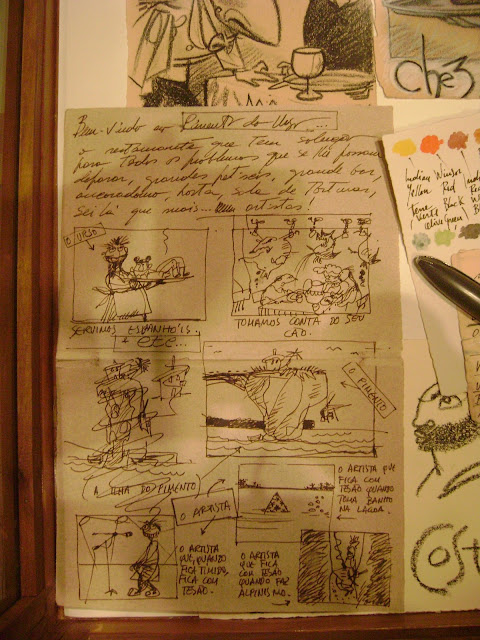 chez
Bem-vindo ao Pimento do Urso...
o restaurante que tem solução
para todos os problemas que se lhe possam
deparar, grandes petiscos, grande bar,
ancoradouro, horta, sala de torturas,
Sei lá que mais... artistas!
O URSO
SERVIMOS ESPANHÓIS
+ etc...
TOMAMOS CONTA DO SEU
CÃO.
O PIMENTO
A ILHA DO PIMENTO
O ARTISTA
O ARTISTA
QUE, QUANDO
FICA TIMIDO,
FICA COM
TESÃO.
O ARTISTA
QUE FICA
COM TESÃO
QUANDO FAZ
ALPINISMO.
O ARTISTA QUE
FICA COM
TESÃO QUANDO
TOMA BANHO
NA LAGOA.
Indian
Yellow
Terra
verte
Winsor
Red
Black
olive green
Cost